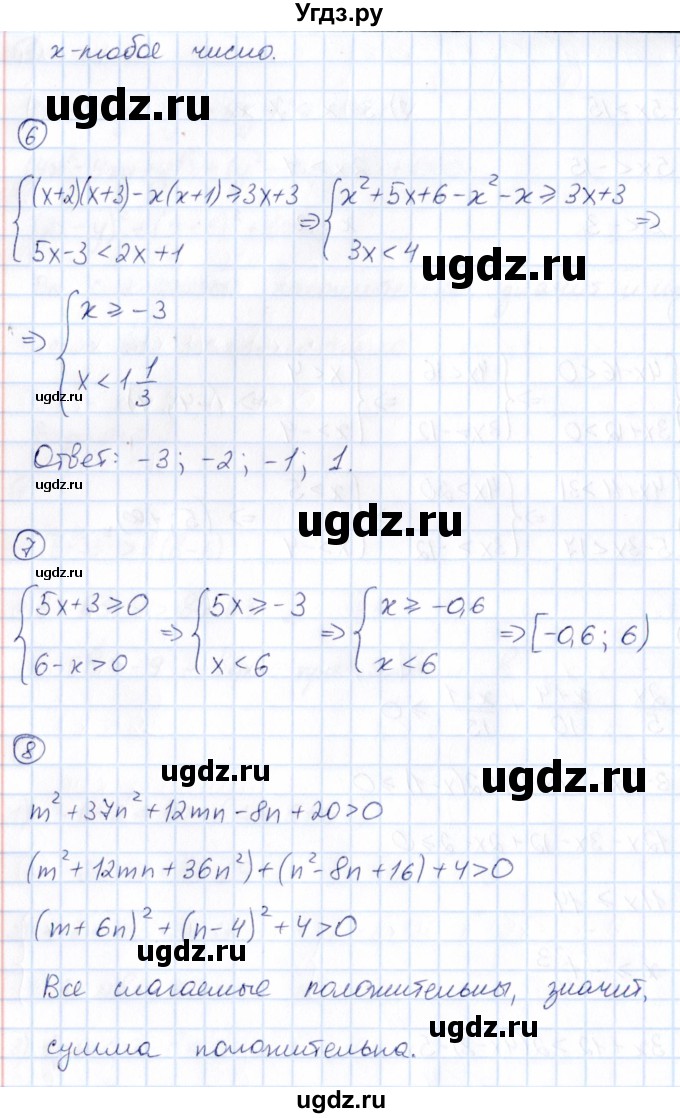 Угдз.ру
x-любое число.
ugdz.ru
6
{(x+2)(x+3)-x(x+1)≥3x+3 ⇒ {x²+5x+6-x²-x≥3x+3 ⇒
5x-3<2x+1 3x<4
ugdz.ru
⇒ {x≥-3
x<1 1/3
ugdz.ru
Ответ: -3; -2; -1; 1.
ugdz.ru
ugdz.ru
7
ugdz.ru
{5x+3≥0 ⇒ {5x≥-3 ⇒ {x≥-0,6 ⇒ [-0,6; 6)
6-x>0 x<6 x<6
8
ugdz.ru
ugdz.ru
m²+37n²+12mn-8n+20>0
(m²+12mn+36n²)+(n²-8n+16)+4>0
(m+6n)²+(n-4)²+4>0
ugdz.ru
Все слагаемые положительны, значит,
ugdz.ru
сумма положительна.
ugdz.ru